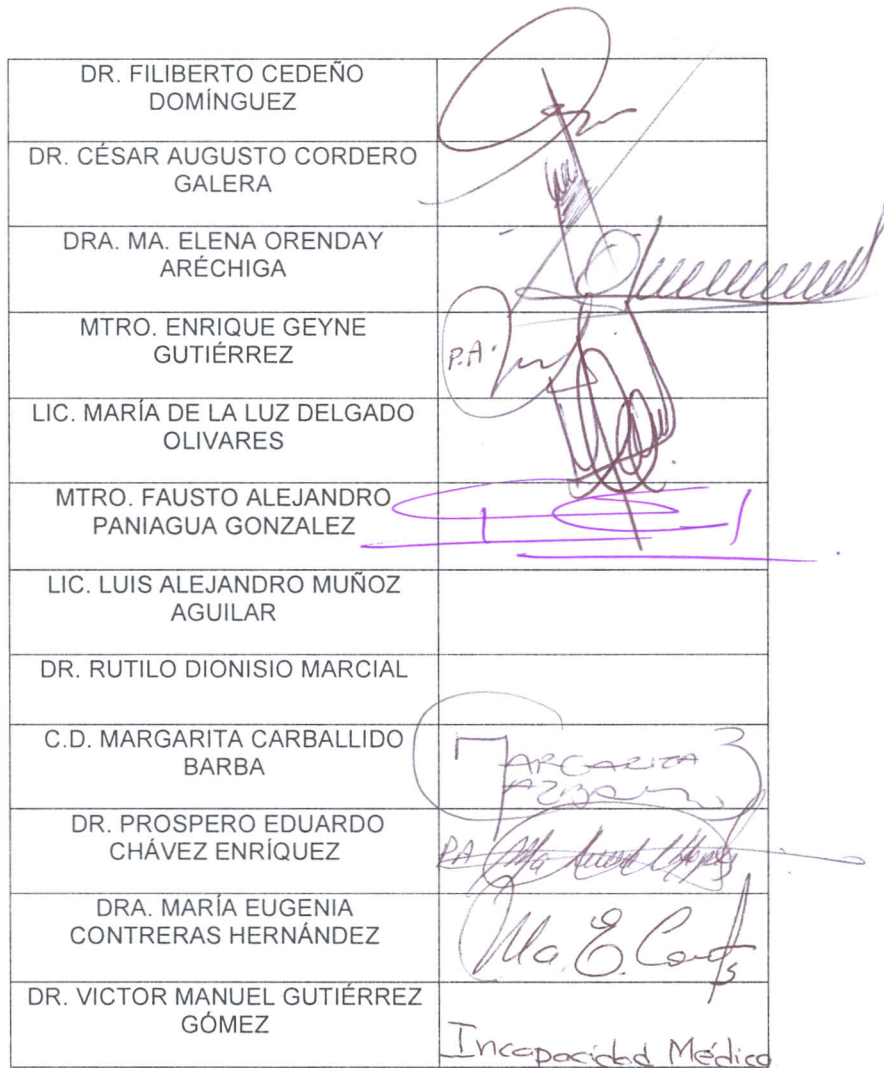 DR. FILIBERTO CEDEÑO
DOMÍNGUEZ
DR. CÉSAR AUGUSTO CORDERO
GALERA
DRA. MA. ELENA ORENDAY
ARÉCHIGA
MTRO. ENRIQUE GEYNE
GUTIÉRREZ
P.A.
LIC. MARÍA DE LA LUZ DELGADO
OLIVARES
MTRO. FAUSTO ALEJANDRO
PANIAGUA GONZALEZ
LIC. LUIS ALEJANDRO MUÑOZ
AGUILAR
DR. RUTILO DIONISIO MARCIAL
C.D. MARGARITA CARBALLIDO
BARBA
MARGARITA
DR. PROSPERO EDUARDO
CHÁVEZ ENRÍQUEZ
PA Ma
DRA. MARÍA EUGENIA
CONTRERAS HERNÁNDEZ
Ma. E.
DR. VICTOR MANUEL GUTIÉRREZ
GÓMEZ
Incapacidad Médica